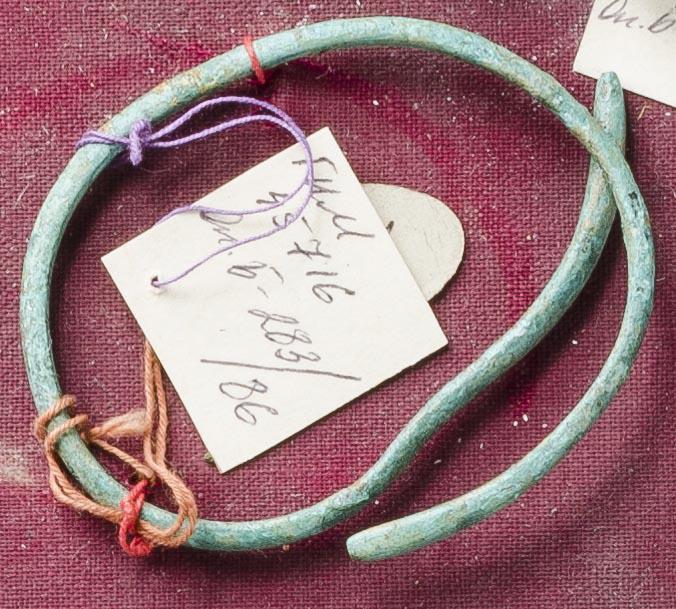 ГИМ
45-716
Оп. б-
283/86
Оп. б